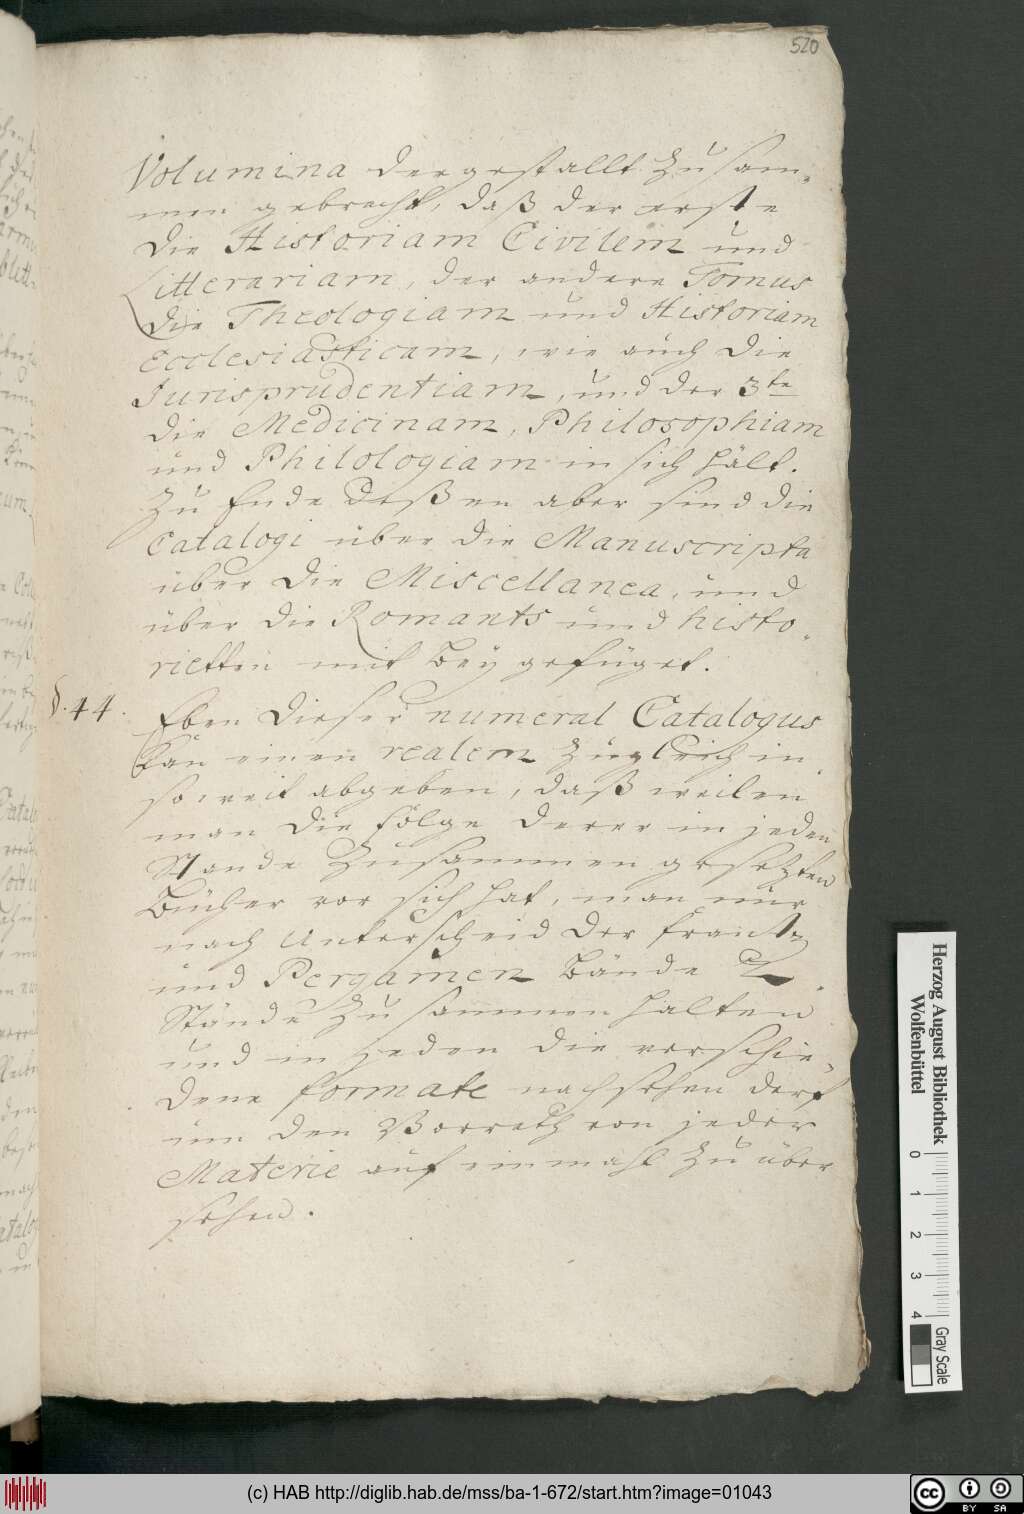 520
Volumina dergestallt zusam-
men gebracht, daß der erste
die Historiam Civilem und
Litterariam, der andere Tomus
die Theologiam und Historiam
Ecclesiasticam, wie auch die
Jurisprudentiam, und der 3te
die Medicinam, Philosophiam
und Philologiam in sich hält.
Zu Ende deßen aber sind die
Catalogi über die Manuscripta
über die Miscellanea, und
über die Romants und histo-
rietten mit beygefüget.
§. 44. Eben dieser numeral Catalogus
kan einen realem zugleich in
so weit abgeben, daß weilen
man die folge derer in jeden
Stande zusammen gesetzten
Bücher vor sich hat, man nur
nach Unterscheid der frantz
und Pergamen Bände 2
Stände zusammen halten
und in jeden die verschie-
dene formate nachsehen derf
um den Vorrath von jeder
Materie auf einmahl zu über
sehen.
Herzog August Bibliothek
Wolfenbüttel
0 1 2 3 4
Gray Scale
(c) HAB http://diglib.hab.de/mss/ba-1-672/start.htm?image=01043
cc BY SA